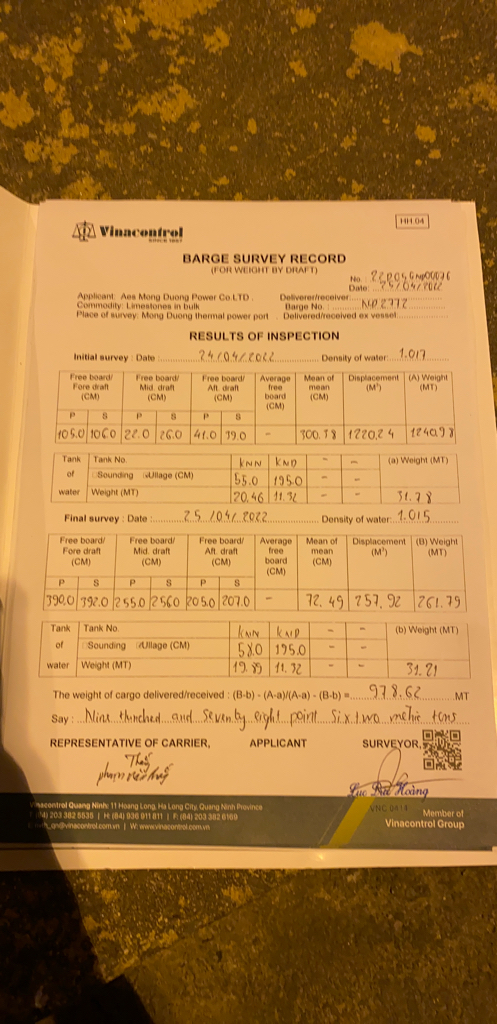 HH.04
Vinacontrol
SINCE 1957
BARGE SURVEY RECORD
(FOR WEIGHT BY DRAFT)
No. :
Date: 25/04/2022
Applicant: Aes Mong Duong Power Co.LTD . Deliverer/receiver
Commodity: Limestones in bulk Barge No. : NĐ 2772
Place of survey: Mong Duong thermal power port . Delivered/received ex vessel
RESULTS OF INSPECTION
Initial survey : Date : 24/04/2022 Density of water: 1.017
Free board/ Fore draft (CM) Free board/ Mid. draft (CM) Free board/ Aft. draft (CM) Average free board (CM) Mean of mean (CM) Displacement (M³) (A) Weight (MT)
P S P S P S
105.0 106.0 22.0 26.0 41.0 39.0 - 300.38 1220.24 1240.98
Tank of water Tank No. KNN KND - - (a) Weight (MT)
Sounding Ullage (CM) 55.0 195.0 - -
Weight (MT) 20.46 11.32 - - 31.78
Final survey : Date : 25/04/2022 Density of water: 1.015
Free board/ Fore draft (CM) Free board/ Mid. draft (CM) Free board/ Aft. draft (CM) Average free board (CM) Mean of mean (CM) Displacement (M³) (B) Weight (MT)
P S P S P S
390.0 392.0 255.0 256.0 205.0 207.0 - 72.49 257.92 261.79
Tank of water Tank No. KNN KND - - (b) Weight (MT)
Sounding Ullage (CM) 58.0 195.0 - -
Weight (MT) 19.89 11.32 - - 31.21
The weight of cargo delivered/received : (B-b) - (A-a)/(A-a) - (B-b) = 978.62 MT
Say : Nine hundred and seventy eight point six two metric tons
REPRESENTATIVE OF CARRIER, APPLICANT SURVEYOR,
Lục Đức Hoàng
VNC 0414
Vinacontrol Quang Ninh: 11 Hoang Long, Ha Long City, Quang Ninh Province
T: (84) 203 382 5535 | H: (84) 936 911 811 | F: (84) 203 382 6169
W: www.vinacontrol.com.vn
Member of
Vinacontrol Group